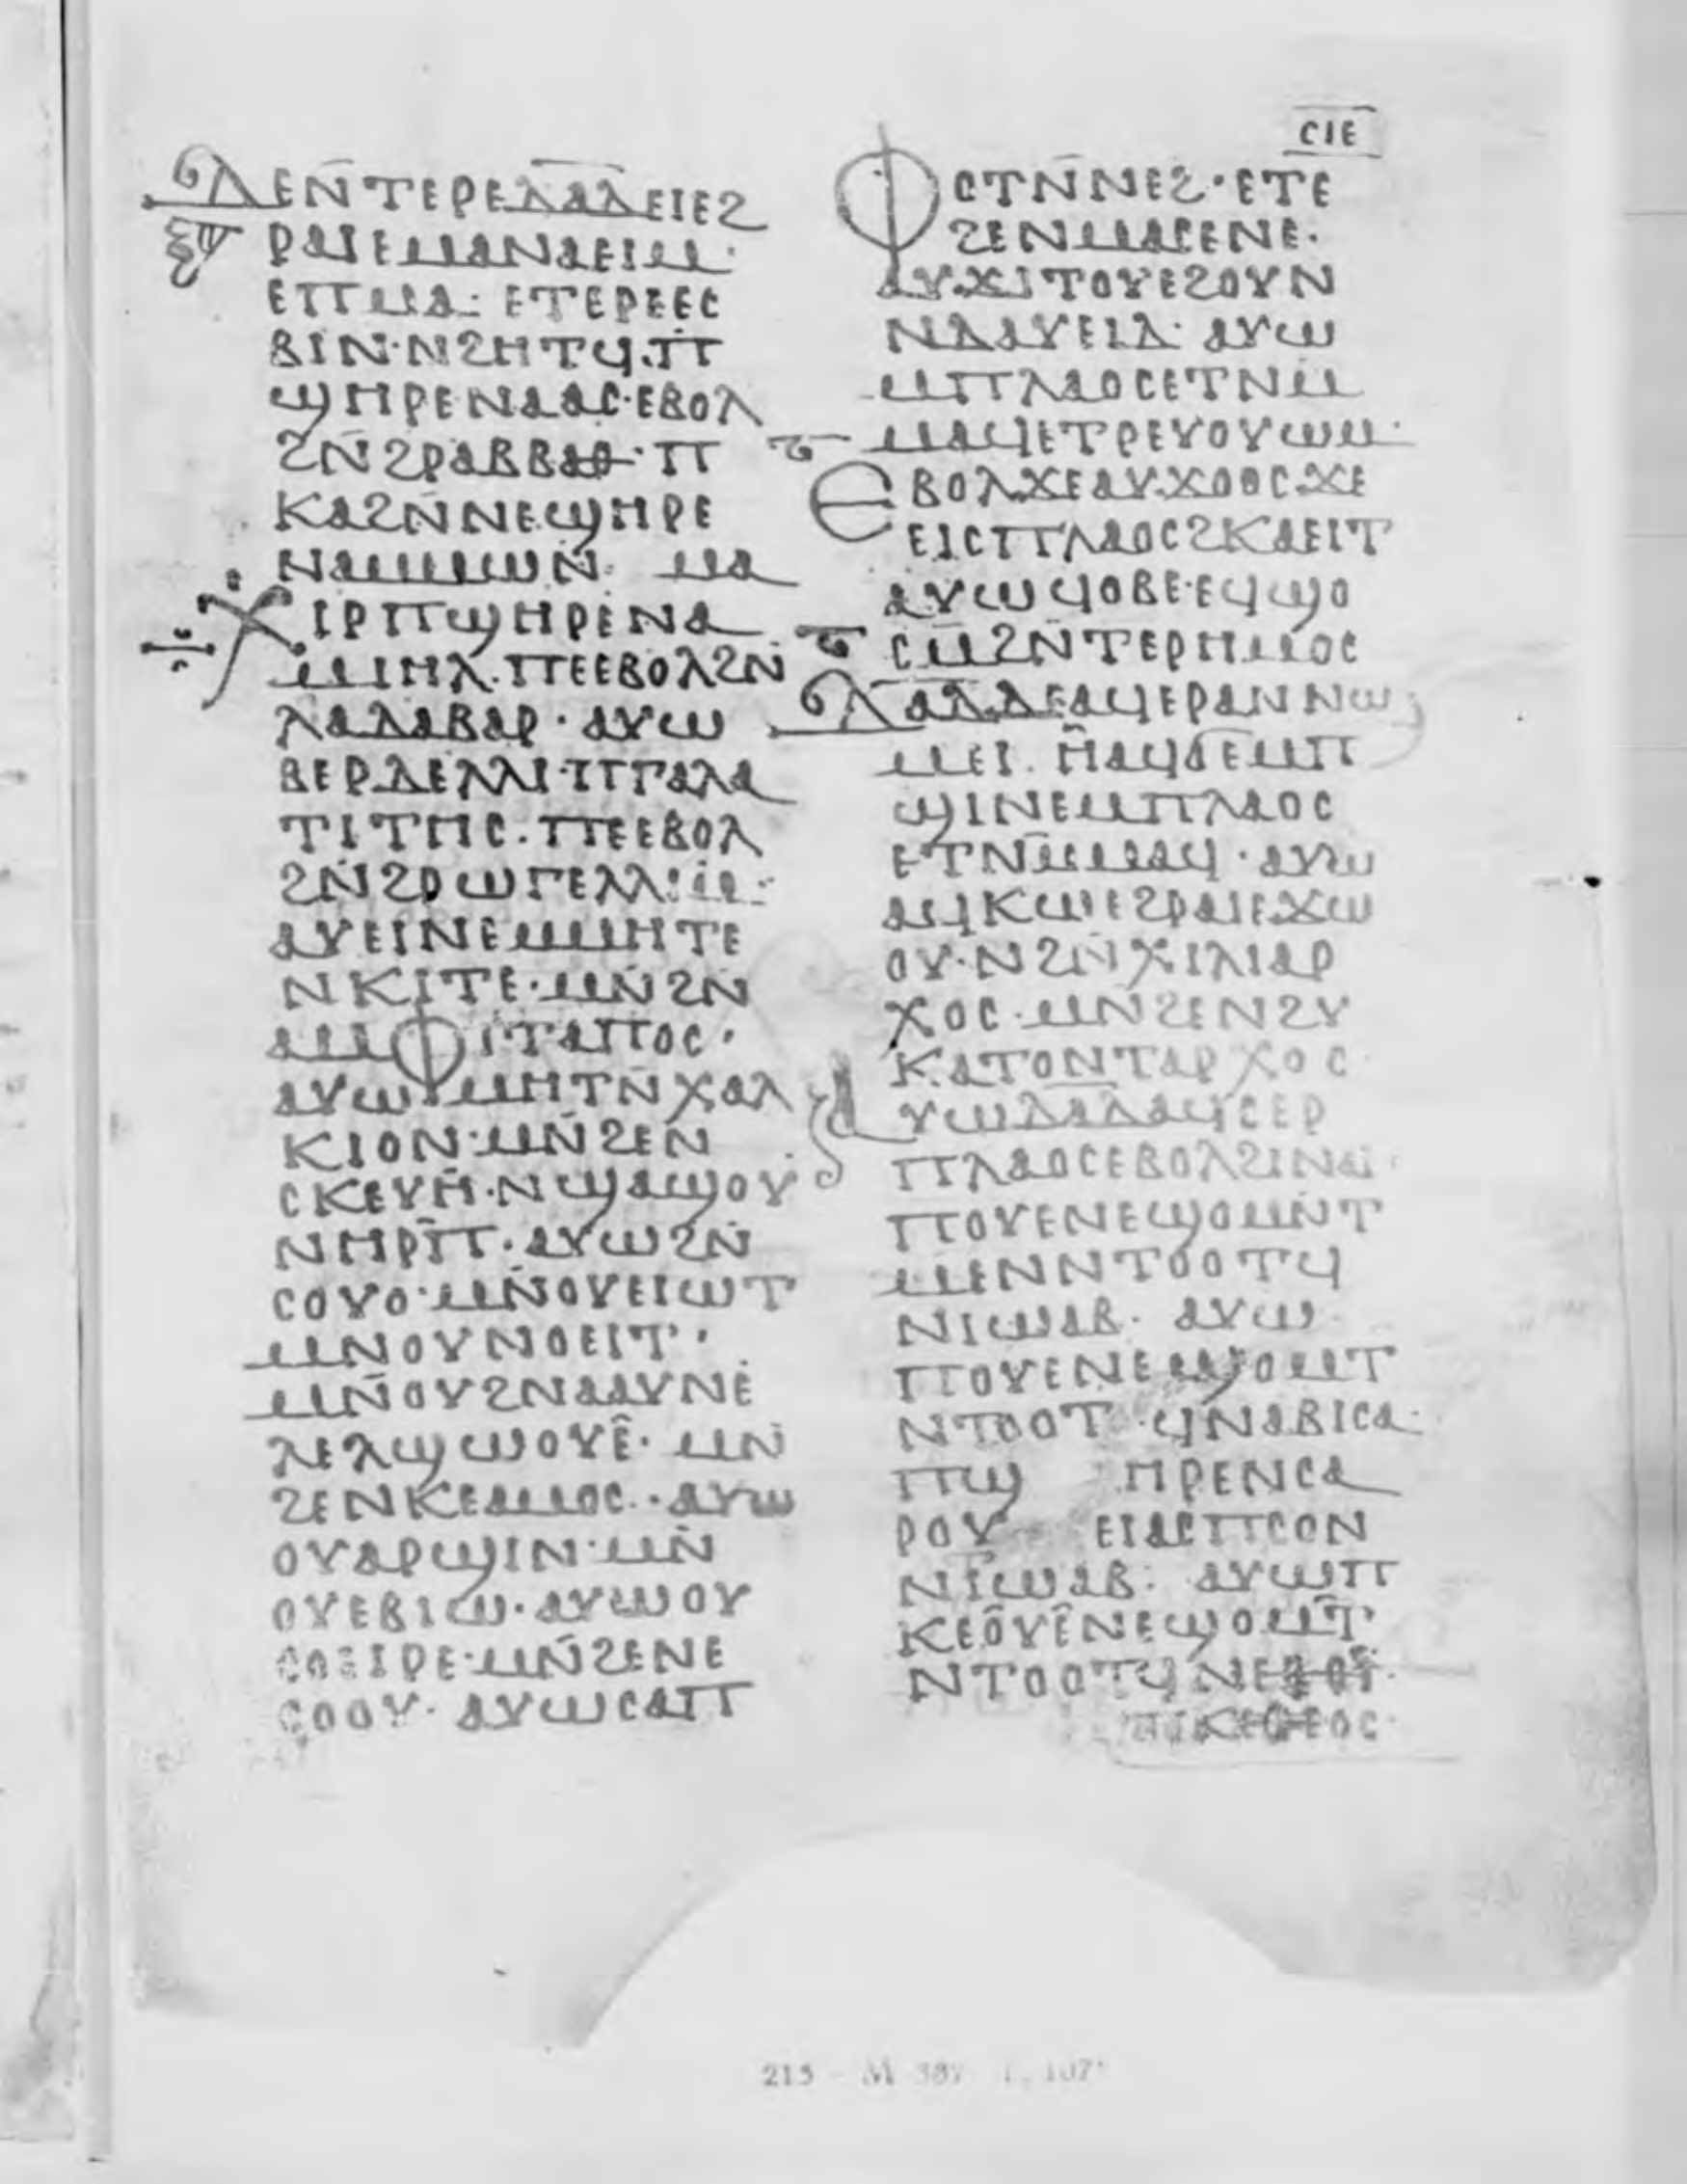 ⲤⲒⲈ
ⲆⲈⲚ̅ⲦⲈⲢⲈⲆⲀⲆⲈⲒⲈϨ
ⲢⲀⲒⲈⲘⲀⲚⲀⲈⲒⲘ·
ⲈⲠⲘⲀ· ⲈⲦⲈⲢⲈⲈⲤ
ⲂⲒⲚ·ⲚϨⲎⲦϤ·Ⲡ
ϢⲎⲢⲈⲚⲀⲀⲤ·ⲈⲂⲞⲖ
ϨⲚ̅ϨⲢⲀⲂⲂⲀⲐ·Ⲡ
ⲔⲀϨⲚ̅ⲚⲈϢⲎⲢⲈ
ⲚⲀⲘⲘⲰⲚ· ⲘⲀ
ⲬⲒⲢⲠϢⲎⲢⲈⲚⲀ
ⲘⲒⲎⲖ·ⲠⲈⲈⲂⲞⲖϨⲚ
ⲖⲀⲆⲀⲂⲀⲢ· ⲀⲨⲰ
ⲂⲈⲢⲆⲈⲖⲖⲒ·ⲠⲄⲀⲖⲀ
ⲦⲒⲦⲎⲤ·ⲠⲈⲈⲂⲞⲖ
ϨⲚ̅ϨⲢⲰⲄⲈⲖⲖⲒⲘ·
ⲀⲨⲈⲒⲚⲈⲘⲘⲎⲦⲈ
ⲚⲔⲒⲦⲈ·ⲘⲚ̅ϨⲚ
ⲀⲘⲪⲒⲦⲀⲠⲞⲤ·
ⲀⲨⲰⲘⲎⲦⲚ̅ⲬⲀⲖ
ⲔⲒⲞⲚ·ⲘⲚ̅ϨⲈⲚ
ⲤⲔⲈⲨⲎ·ⲚϢⲀϢⲞⲨ
ⲚⲎⲢⲠ̅·ⲀⲨⲰϨⲚ
ⲤⲞⲨⲞ·ⲘⲚ̅ⲞⲨⲈⲒⲰⲦ
ⲘⲚⲞⲨⲚⲞⲈⲒⲦ·
ⲘⲚ̅ⲞⲨϨⲚⲀⲀⲨⲚⲈ
ⲖⲈⲖϢⲰⲞⲨⲈ̂· ⲘⲚ
ϨⲈⲚⲔⲈⲀⲘⲞⲤ·ⲀⲨⲰ
ⲞⲨⲀⲢϢⲒⲚ·ⲘⲚ̅
ⲞⲨⲈⲂⲒⲰ·ⲀⲨⲰⲞⲨ
ⲤⲀⲈⲒⲢⲈ·ⲘⲚ̅ϨⲈⲚⲈ
ⲤⲞⲞⲨ· ⲀⲨⲰⲤⲀⲠ
ⲪⲞⲦⲚ̅ⲚⲈϨ·ⲈⲦⲈ
ϨⲈⲚⲘⲀⲤⲈⲚⲈ·
ⲀⲨϪⲒⲦⲞⲨⲈϨⲞⲨⲚ
ⲚⲆⲀⲨⲈⲒⲆ· ⲀⲨⲰ
ⲘⲠⲖⲀⲞⲤⲈⲦⲚⲘ
ⲘⲀϤⲈⲦⲢⲈⲨⲞⲨⲰⲘ·
ⲈⲂⲞⲖϪⲈⲀⲨϪⲞⲞⲤϪⲈ
ⲈⲒⲤⲠⲖⲀⲞⲤϨⲔⲀⲈⲒⲦ
ⲀⲨⲰϤⲞⲂⲈ·ⲈϤϢⲞ
ⲤⲘ̅ϨⲚ̅ⲦⲈⲢⲎⲘⲞⲤ
ⲆⲀⲆⲆⲈⲀϤⲈⲢⲀⲚⲚⲰ
ⲘⲈⲒ· ⲎⲀϤϬⲈⲘⲠ
ϢⲒⲚⲈⲘⲠⲖⲀⲞⲤ
ⲈⲦⲚⲘ̅ⲘⲀϤ·ⲀⲨⲰ
ⲀϤⲔⲰⲈϨⲢⲀⲒⲈϪⲰ
ⲞⲨ·ⲚϨⲚ̅ⲬⲒⲖⲒⲀⲢ
ⲬⲞⲤ·ⲘⲚ̅ϨⲈⲚϨⲨ
ⲔⲀⲦⲞⲚⲦⲀⲢⲬⲞⲤ
ⲀⲨⲰⲆⲀⲆⲀϤⲤⲈⲢ
ⲠⲖⲀⲞⲤⲈⲂⲞⲖϨⲒⲚⲀⲒ
ⲠⲞⲨⲈⲚⲈϢⲞⲘⲚ̅Ⲧ
ⲘⲈⲚⲚⲦⲞⲞⲦϤ
ⲚⲒⲰⲀⲂ· ⲀⲨⲰ
ⲠⲞⲨⲈⲚⲈϢⲞⲘⲦ
ⲚⲦⲞⲞⲦϤⲚⲀⲂⲒⲤⲀ·
ⲠϢⲎⲢⲈⲚⲤⲀ
ⲢⲞⲨⲈⲒⲀⲤⲠⲤⲞⲚ
ⲚⲒⲰⲀⲂ· ⲀⲨⲰⲠ
ⲔⲈⲞ̂ⲨⲈ̂ⲚⲈϢⲞⲘ̅Ⲧ
ⲚⲦⲞⲞⲦϤ